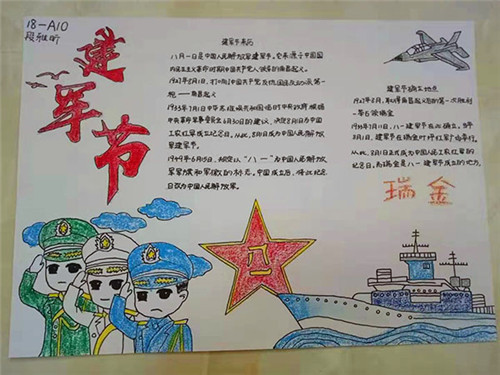 18-A10
建军节
建军节来历
八月一日是中国人民解放军建军节。它来源于中国国
内民主主义革命时期中国共产党人领导的南昌起义。
1927年8月1日,打响中国共产党反抗国民反动派第一
枪——南昌起义
1933年7月1日中华苏维埃共和国临时中央政府根据
中央革命军事委员会6月30日的建议,决定8月1日为中国
工农红军成立纪念日。从此,8月1日成为中国人民解放
军建军节。
1949年6月15日,规定以"八一"为中国人民解放
军军旗和军徽的标志。中国成立后,将此纪念
日改为中国人民解放军。
建军节确立地点
1927年8月,南昌起义后的第一次胜利
1933年7月11日,八一建军节在此确立。8月
1日,建军节在瑞金叶坪红军广场举行。
从此,8月1日正式成为中国人民工农红军的
纪念日。而瑞金是八一建军节成立的地方。
瑞金
八一